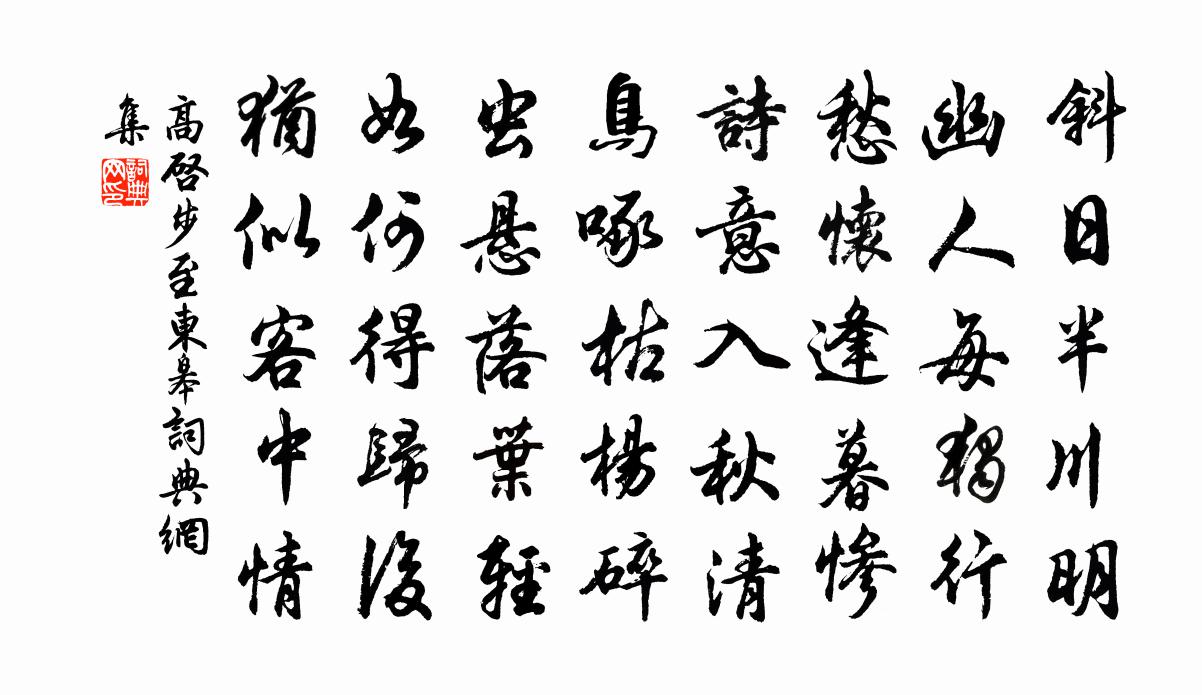 斜日半川明
幽人每獨行
愁懷逢暮慘
詩意入秋清
鳥啄枯楊碎
虫懸落葉輕
如何得歸後
猶似客中情
高啓步至東皋詞典網
集
詞典網印